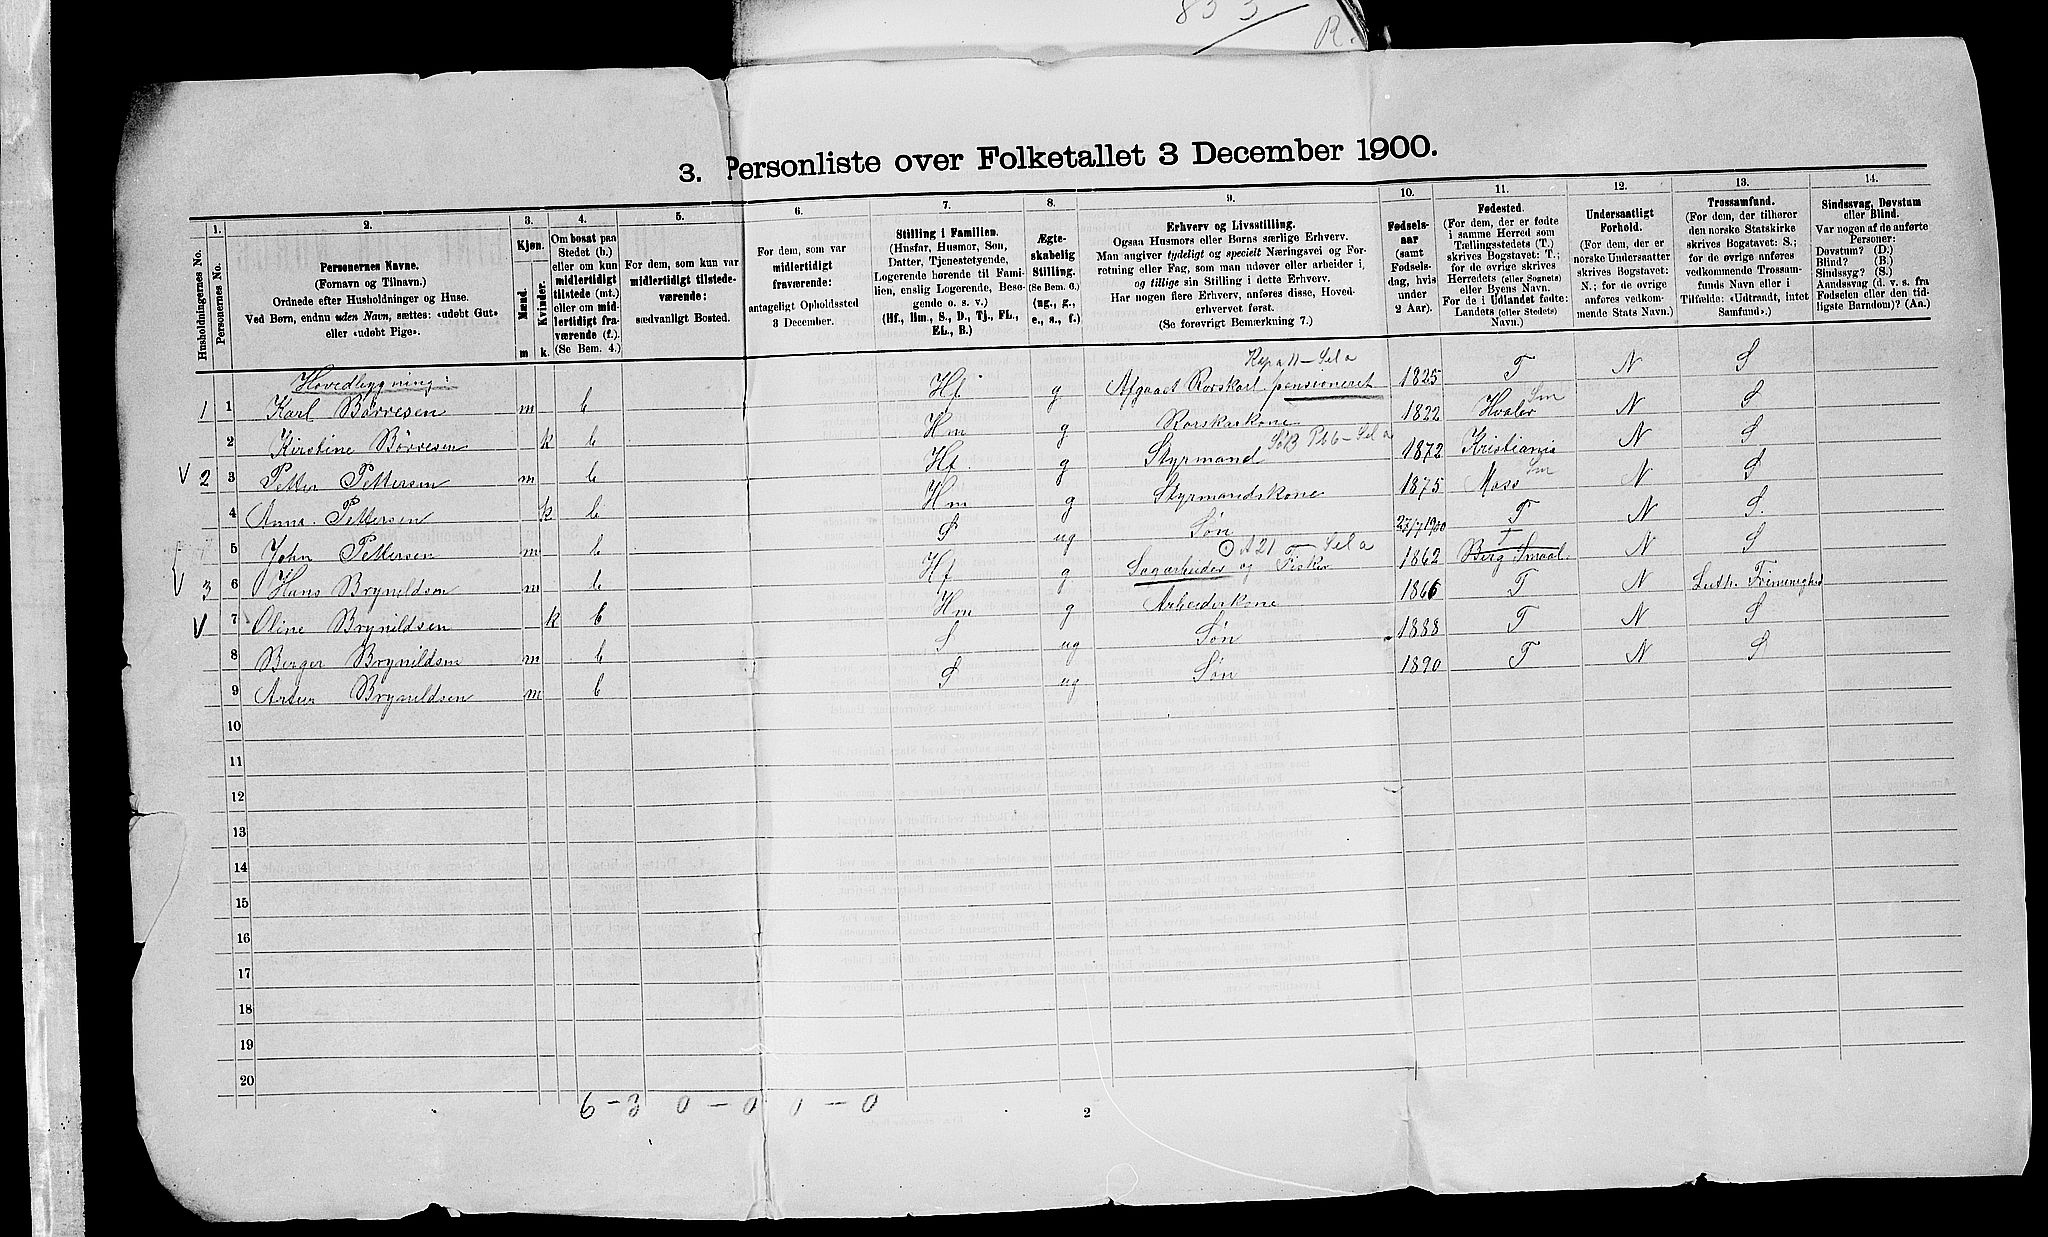 853
R.
3. Personliste over Folketallet 3 December 1900.
1. 2. 3. 4. 5. 6. 7. 8. 9. 10. 11. 12. 13. 14.
Husholdningernes No.
Personernes No.
Personernes Navne.
(Fornavn og Tilnavn.)
Ordnede efter Husholdninger og Huse.
Ved Børn, endnu uden Navn, sættes: «udøbt Gut»
eller «udøbt Pige».
Kjøn.
Mænd. Kvinder.
m k.
Om bosat paa
Stedet (b.)
eller om kun
midlertidigt
tilstede (mt.)
eller om mid-
lertidigt fra-
værende (f.).
(Se Bem. 4.)
For dem, som kun var
midlertidigt tilstede-
værende:
sædvanligt Bosted.
For dem, som var
midlertidigt
fraværende:
antageligt Opholdssted
3 December.
Stilling i Familien.
(Husfar, Husmor, Søn,
Datter, Tjenestetyende,
Logerende hørende til Fami-
lien, enslig Logerende, Besø-
gende o. s. v.)
(Hf., Hm., S., D., Tj., FL.,
EL., B.)
Ægte-
skabelig
Stilling.
(Se Bem. 6.)
(ug., g.,
e., s., f.)
Erhverv og Livsstilling.
Ogsaa Husmors eller Børns særlige Erhverv.
Man angiver tydeligt og specielt Næringsvei og For-
retning eller Fag, som man udøver eller arbeider i,
og tillige sin Stilling i dette Erhverv.
Har nogen flere Erhverv, anføres disse, Hoved-
erhvervet først.
(Se forøvrigt Bemærkning 7.)
Fødsels-
aar
(samt
Fødsels-
dag, hvis
under
2 Aar).
Fødested.
(For dem, der er fødte
i samme Herred som
Tællingsstedets (T.)
skrives Bogstavet: T.;
for de øvrige skrives
Herredets (eller Sognets)
eller Byens Navn.
For de i Udlandet fødte:
Landets (eller Stedets)
Navn.)
Undersaatligt
Forhold.
(For dem, der er
norske Undersaatter
skrives Bogstavet:
N.; for de øvrige
anføres vedkom-
mende Stats Navn.)
Trossamfund.
(For dem, der tilhører
den norske Statskirke
skrives Bogstavet: S.;
for de øvrige anføres
vedkommende Trossam-
funds Navn eller i
Tilfælde: «Udtraadt, intet
Samfund».)
Sindssvag, Døvstum
eller Blind.
Var nogen af de anførte
Personer:
Døvstum? (D.)
Blind? (B.)
Sindssyg? (S.)
Aandssvag (d. v. s. fra
Fødselen eller den tid-
ligste Barndom)? (Aa.)
Hovedbygning:
1 1 Karl Börresen m b Hf g Afgaaet Rorskarl pensioneret 1825 T N S
2 Kirstine Börresen k b Hm g Rorskarskone 1822 Hvaler Sm N S
v 2 3 Petter Pettersen m b Hf. g Styrmand 1872 Kristiania N S
4 Anna Pettersen k b Hm g Styrmandskone 1875 Moss Sm N S
5 John Pettersen m b S ug Søn 27/7 1900 T N S.
3 6 Hans Brynildsen m b Hf g Sagarbeider og Fisker 1862 Berg Smaal. T N S
v 7 Oline Brynildsen k b Hm g Arbeiderkone 1866 T N Luth. Frimenighed
8 Berger Brynildsen m b S ug Søn 1888 T N S
9 Artur Brynildsen m b S ug Søn 1890 T N S
10
11
12
13
14
15
16
17
18
19
20
6 – 3 0 – 0 0 – 0
2